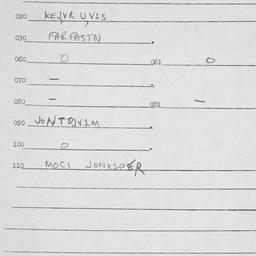 020 KEJVR UVIS
030 FARFASTN .
060 O 061 O
070 – .
080 – 081 –
090 JONTQVIM
100 O .
110 MOCI JONKIPER